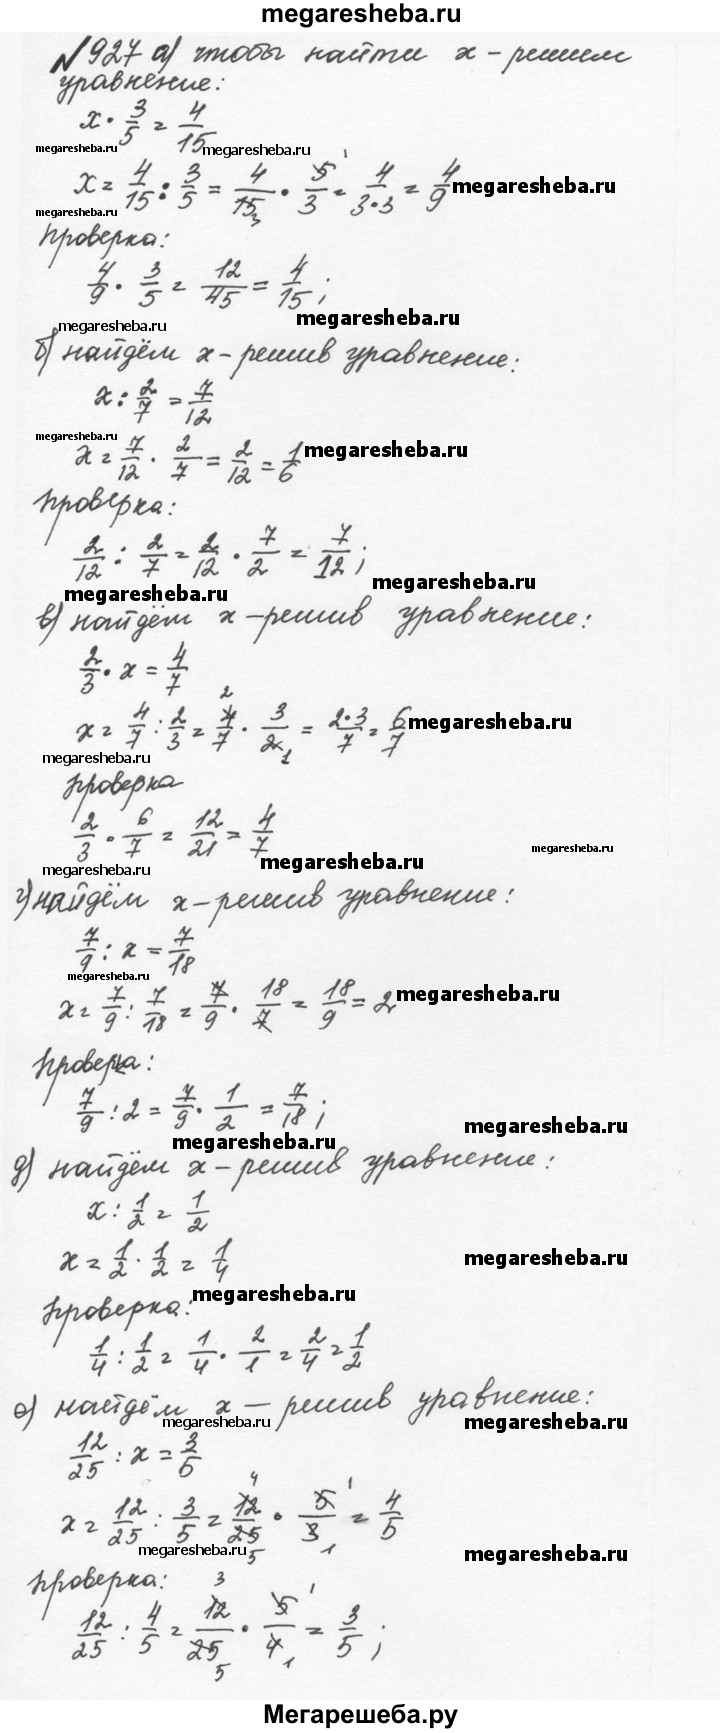 megaresheba.ru
№927 а) чтобы найти x - решим
уравнение:
x · 3/5 = 4/15
megaresheba.ru megaresheba.ru
x = 4/15 : 3/5 = 4/15 3 · 5/3 1 = 4/3·3 = 4/9 megaresheba.ru
megaresheba.ru
Проверка:
4/9 · 3/5 = 12/45 = 4/15;
megaresheba.ru megaresheba.ru
б) найдём x - решив уравнение:
x : 2/7 = 7/12
megaresheba.ru
x = 7/12 · 2/7 = 2/12 = 1/6 megaresheba.ru
Проверка:
2/12 : 2/7 = 2/12 · 7/2 = 7/12;
megaresheba.ru megaresheba.ru
в) найдём x - решив уравнение:
2/3 · x = 4/7
x = 4/7 : 2/3 = 4/7 2 · 3/2 1 = 2·3/7 = 6/7 megaresheba.ru
megaresheba.ru
Проверка
2/3 · 6/7 = 12/21 = 4/7 megaresheba.ru
megaresheba.ru megaresheba.ru
г) найдём x - решив уравнение:
7/9 : x = 7/18
megaresheba.ru
x = 7/9 : 7/18 = 7/9 · 18/7 = 18/9 = 2 megaresheba.ru
Проверка:
7/9 : 2 = 7/9 · 1/2 = 7/18; megaresheba.ru
megaresheba.ru
д) найдём x - решив уравнение:
x : 1/2 = 1/2
x = 1/2 · 1/2 = 1/4 megaresheba.ru
megaresheba.ru
Проверка:
1/4 : 1/2 = 1/4 · 2/1 = 2/4 = 1/2
е) найдём x — решив уравнение:
megaresheba.ru megaresheba.ru
12/25 : x = 3/5
x = 12/25 : 3/5 = 12/25 4 5 · 5/3 1 1 = 4/5
megaresheba.ru megaresheba.ru
Проверка:
12/25 : 4/5 = 12/25 3 5 · 5/4 1 1 = 3/5;
Мегарешеба.ру